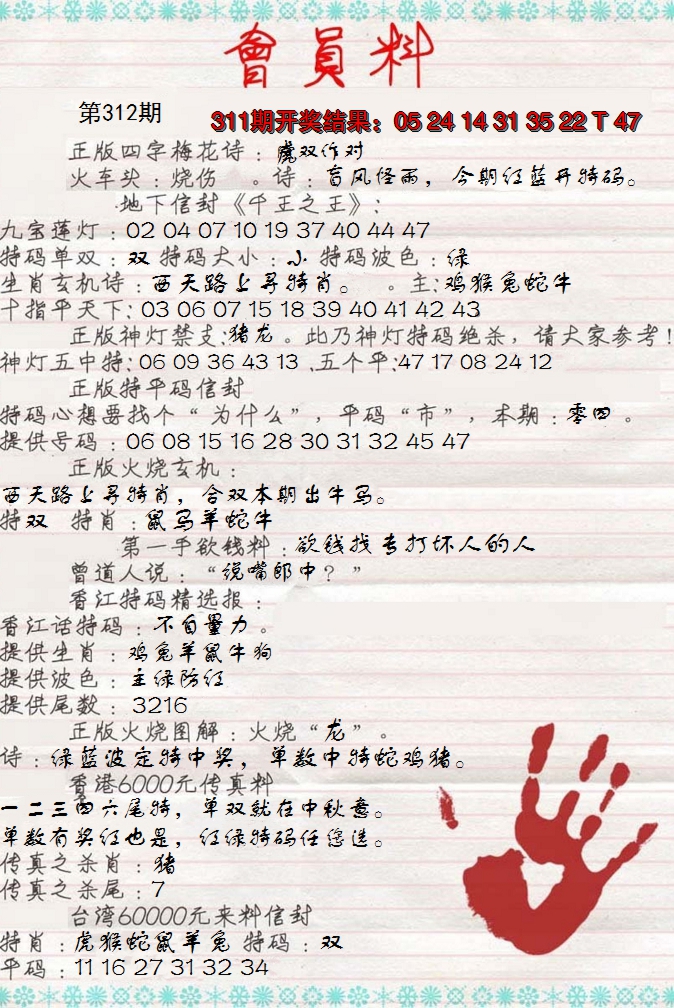 會員料
第312期
311期开奖结果：05 24 14 31 35 22 T 47
正版四字梅花诗：虎双作对
火车头：烧伤 。诗：盲风怪雨，今期红蓝开特码。
地下信封《千王之王》：
九宝莲灯：02 04 07 10 19 37 40 44 47
特码单双：双 特码大小：小 特码波色：绿
生肖玄机诗：西天路上寻特肖。 。主：鸡猴兔蛇牛
十指平天下：03 06 07 15 18 39 40 41 42 43
正版神灯禁支：猪龙。此乃神灯特码绝杀，请大家参考！
神灯五中特：06 09 36 43 13 .五个平：47 17 08 24 12
正版特平码信封
特码心想要找个“为什么”，平码“市”，本期：零四。
提供号码：06 08 15 16 28 30 31 32 45 47
正版火烧玄机：
西天路上寻特肖，合双本期出牛马。
特双 特肖：鼠马羊蛇牛
第一手欲钱料：欲钱找专打坏人的人
曾道人说：“说嘴郎中？”
香江特码精选报：
香江话特码：不自量力。
提供生肖：鸡兔羊鼠牛狗
提供波色：主绿防红
提供尾数：3216
正版火烧图解：火烧“龙”。
诗：绿蓝波定特中奖，单数中特蛇鸡猪。
香港6000元传真料
一二三四六尾特，单双就在中秋意。
单数有奖红也是，红绿特码任您选。
传真之杀肖：猪
传真之杀尾：7
台湾60000元来料信封
特肖：虎猴蛇鼠羊兔 特码：双
平码：11 16 27 31 32 34